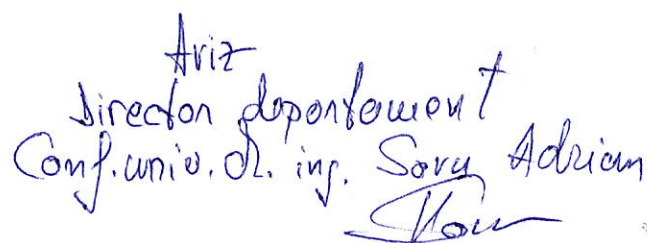 Aviz
Director departament
Conf. univ. dr. ing. Savu Adrian